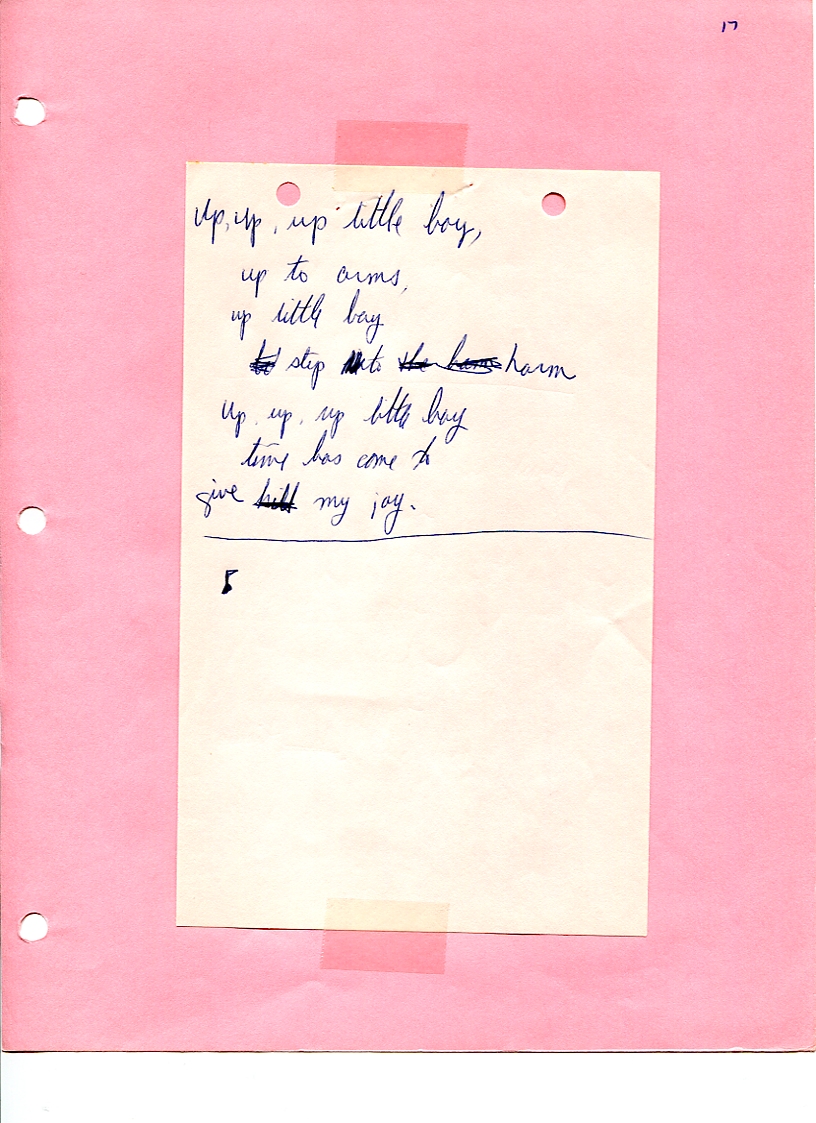 17
up, up, up little boy,
up to arms,
up little boy
step to harm
up, up, up little boy
time has come to
give my joy.